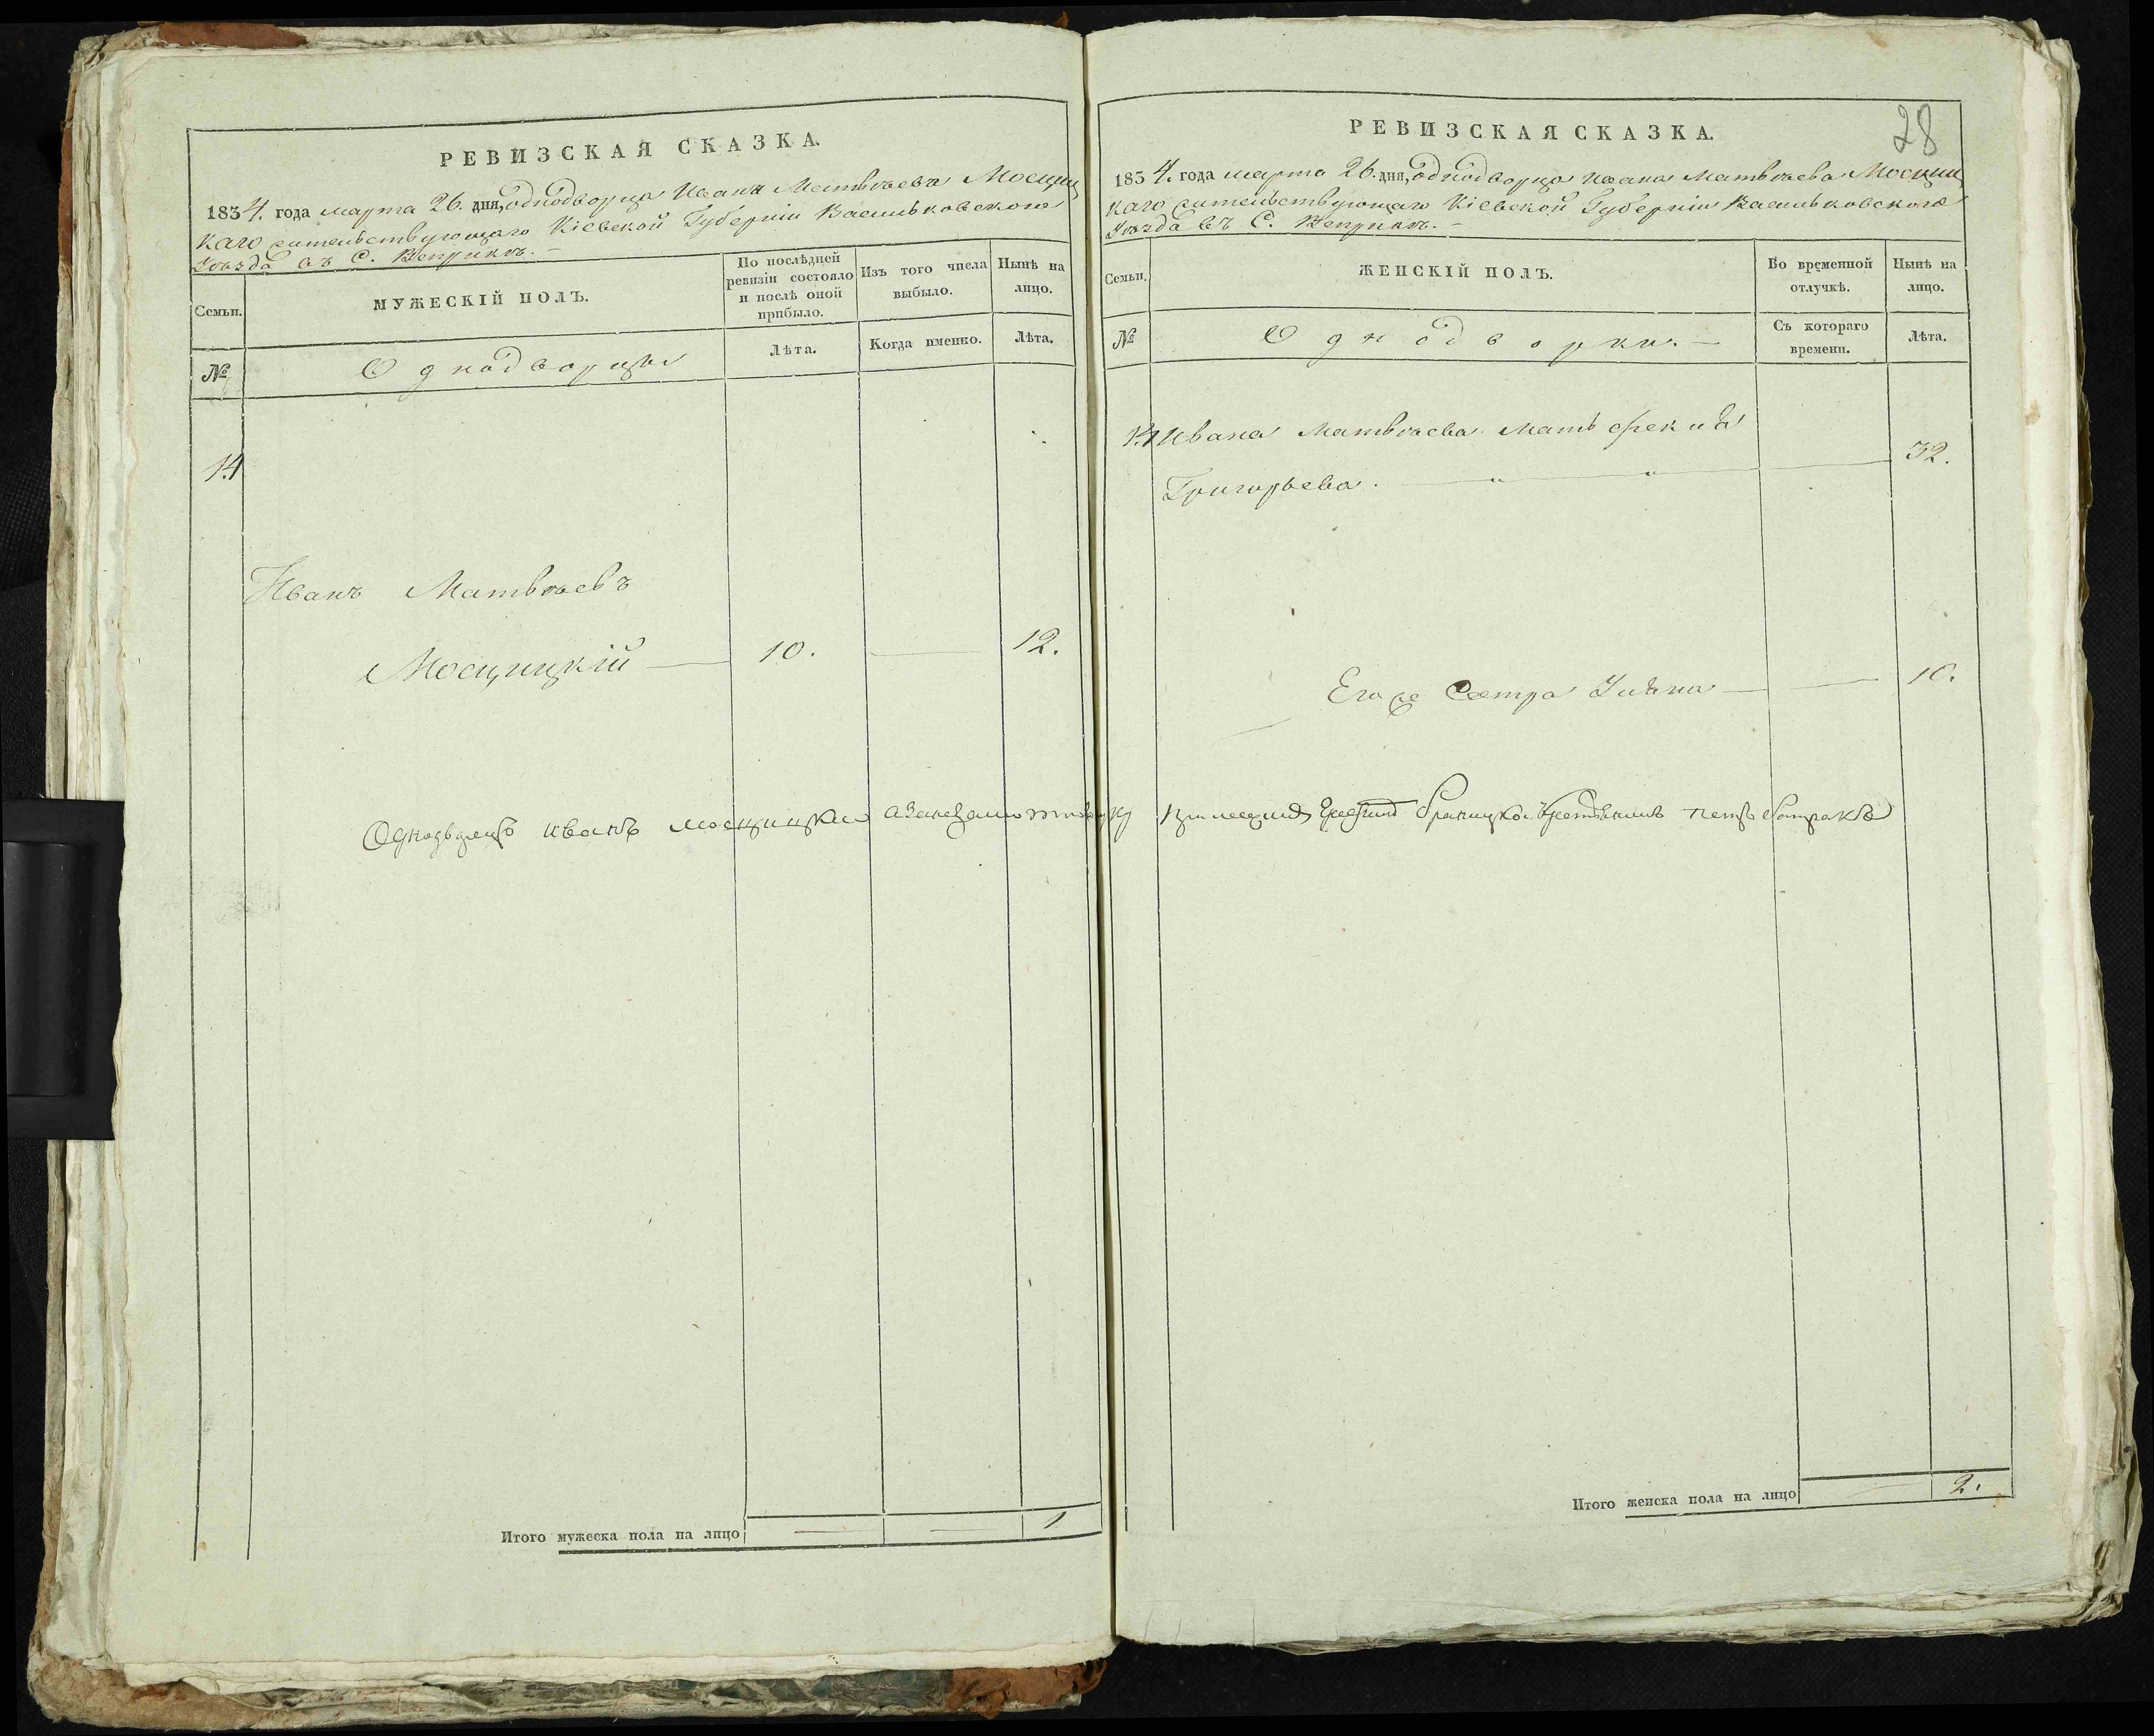 РЕВИЗСКАЯ СКАЗКА.
1834. года марта 26. дня, однодворца Ивана Матвѣева Мосциц
каго жительствующаго Кіевской Губерніи Васильковскаго
Уѣзда въ С. Веприкѣ.
Семьи.
МУЖЕСКІЙ ПОЛЪ.
По послѣдней
ревизіи состояло
и послѣ оной
прибыло.
Изъ того числа
выбыло.
Нынѣ на
лицо.
№
Однодворцы
Лѣта.
Когда именно.
Лѣта.
14
Иванъ Матвѣевъ
Мосцицкій — 10. — 12.
Однодворецъ Иванъ Мосцицкий
Итого мужеска пола на лицо — — 1
28
РЕВИЗСКАЯ СКАЗКА.
1834. года марта 26. дня, однодворца Ивана Матвѣева Мосциц
каго жительствующаго Кіевской Губерніи Васильковскаго
Уѣзда въ С. Веприкѣ. —
Семьи.
ЖЕНСКІЙ ПОЛЪ.
Во временной
отлучкѣ.
Нынѣ на
лицо.
№
Однодворки. —
Съ котораго
времени.
Лѣта.
14 Ивана Матвѣева мать
Григорьева. — 32.
Его же Сестра — — 10.
Итого женска пола на лицо — 2.